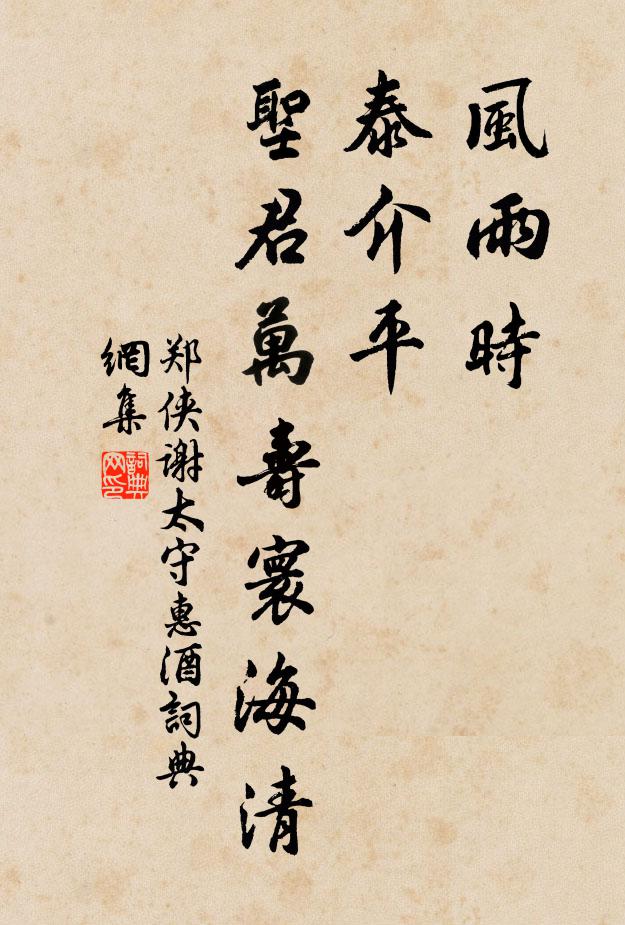 風雨時
泰介平
聖君萬壽寰海清
郑侠谢太守惠酒詞典
網集
詞典
网印